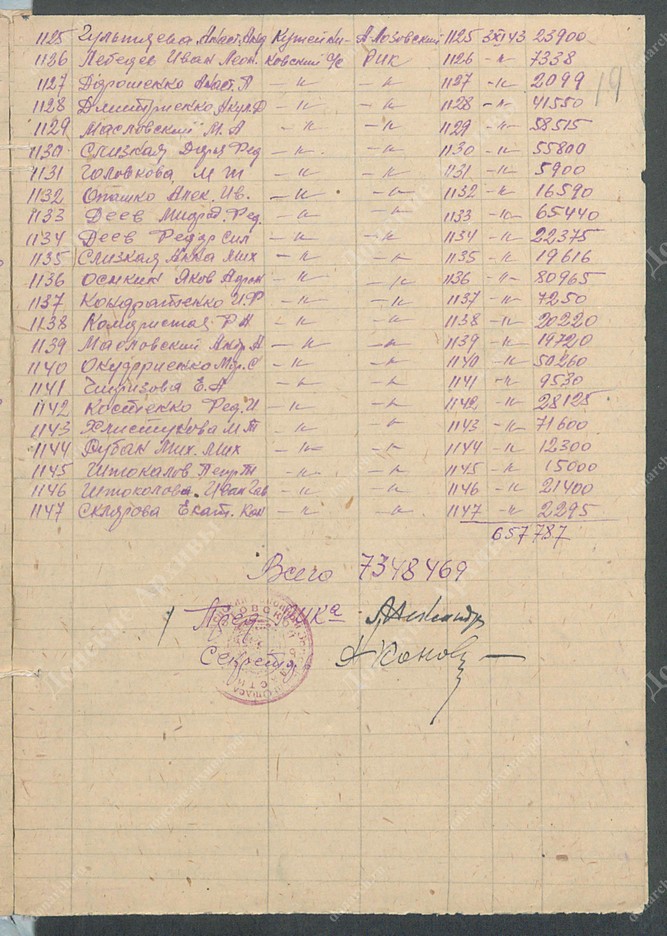 19
1125 Гультяева Анаст. Анд Кутейни- А-Лозовский 1125 3 XI 43 23900
1126 Лебедев Иван Леон. ковский с/с РИК 1126 -"- 7338
1127 Дорошенко Анаст. П -"- -"- 1127 -"- 2099
1128 Дмитриенко Акул. Ф -"- -"- 1128 -"- 41550
1129 Масловский М. А -"- -"- 1129 -"- 58515
1130 Слизкая Дарья Фед -"- -"- 1130 -"- 55800
1131 Головкова М Т -"- -"- 1131 -"- 5900
1132 Оташко Алек. Ив. -"- -"- 1132 -"- 16590
1133 Деев Фед. -"- -"- 1133 -"- 65440
1134 Деев Федор Сил -"- -"- 1134 -"- 22375
1135 Слизкая Анна Мих -"- -"- 1135 -"- 19616
1136 Осыкин Яков -"- -"- 1136 -"- 80965
1137 Кондратенко И Ф -"- -"- 1137 -"- 7250
1138 Камаристая Р Н -"- -"- 1138 -"- 20220
1139 Масловский Анд. А -"- -"- 1139 -"- 19720
1140 С -"- -"- 1140 -"- 50260
1141 Чиризова Е. А -"- -"- 1141 -"- 9530
1142 Костенко Фед. И -"- -"- 1142 -"- 28125
1143 Хлистунова М Т -"- -"- 1143 -"- 71600
1144 Рубан Мих. Мих -"- -"- 1144 -"- 12300
1145 Штокалов Петр Т -"- -"- 1145 -"- 15000
1146 Штоколова Иван Гав -"- -"- 1146 -"- 21400
1147 Склярова Екат. Кон -"- -"- 1147 -"- 2295
657787
Всего 7348469
Пред. РИКа
Секретарь